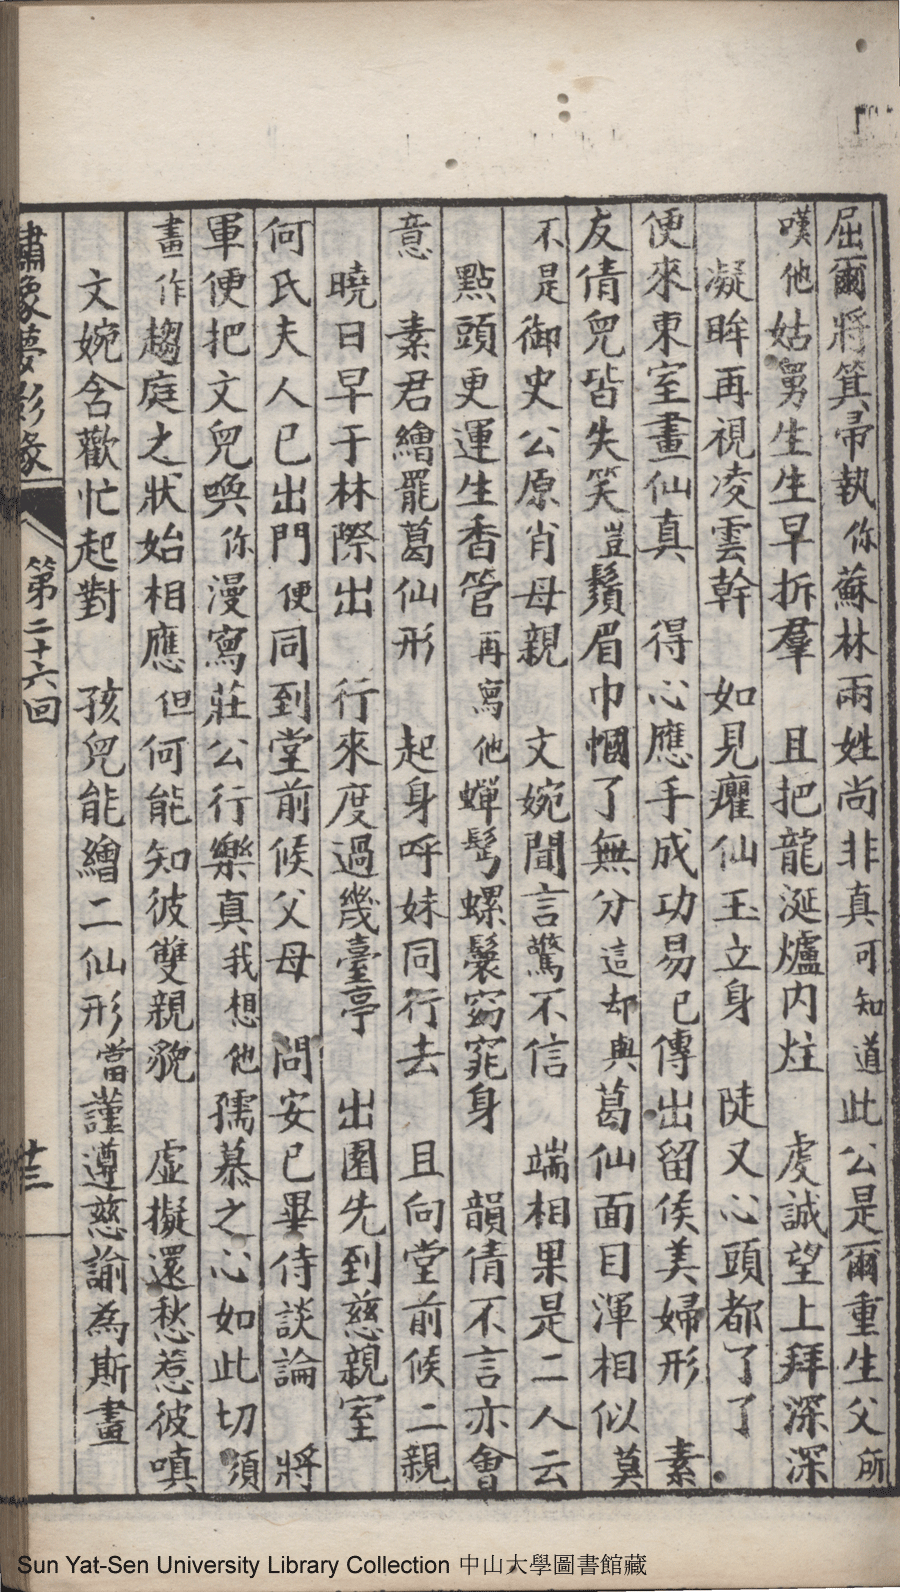 屈爾將箕帚執你蘇林兩姓尚非真可知道此公是爾重生父所
嘆他姑舅生生早拆羣　且把龍涎爐內炷　虔誠望上拜深深
凝眸再視凌雲幹　如見癯仙玉立身　陡又心頭都了了
便來東室畫仙真　得心應手成功易已傳出留侯美婦形　素
友倩兒皆失笑豈鬚眉巾幗了無分這却與葛仙面目渾相似莫
不是御史公原肖母親　文婉聞言驚不信　端相果是二人云
點頭更運生香管再寫他蟬鬂螺鬟窈窕身　韻倩不言亦會
意　素君繪罷葛仙形　起身呼妹同行去　且向堂前候二親
曉日早于林際出　行來度過幾臺亭　出園先到慈親室
何氏夫人已出門便同到堂前候父母　問安已畢侍談論　將
軍便把文兒喚你漫寫莊公行樂真我想他孺慕之心如此切須
畫作趨庭之狀始相應但何能知彼雙親貌　虛擬還愁惹彼嗔
文婉含歡忙起對　孩兒能繪二仙形當謹遵慈諭為斯畫
繡像夢影緣
第二十六回
十三
Sun Yat-Sen University Library Collection 中山大學圖書館藏